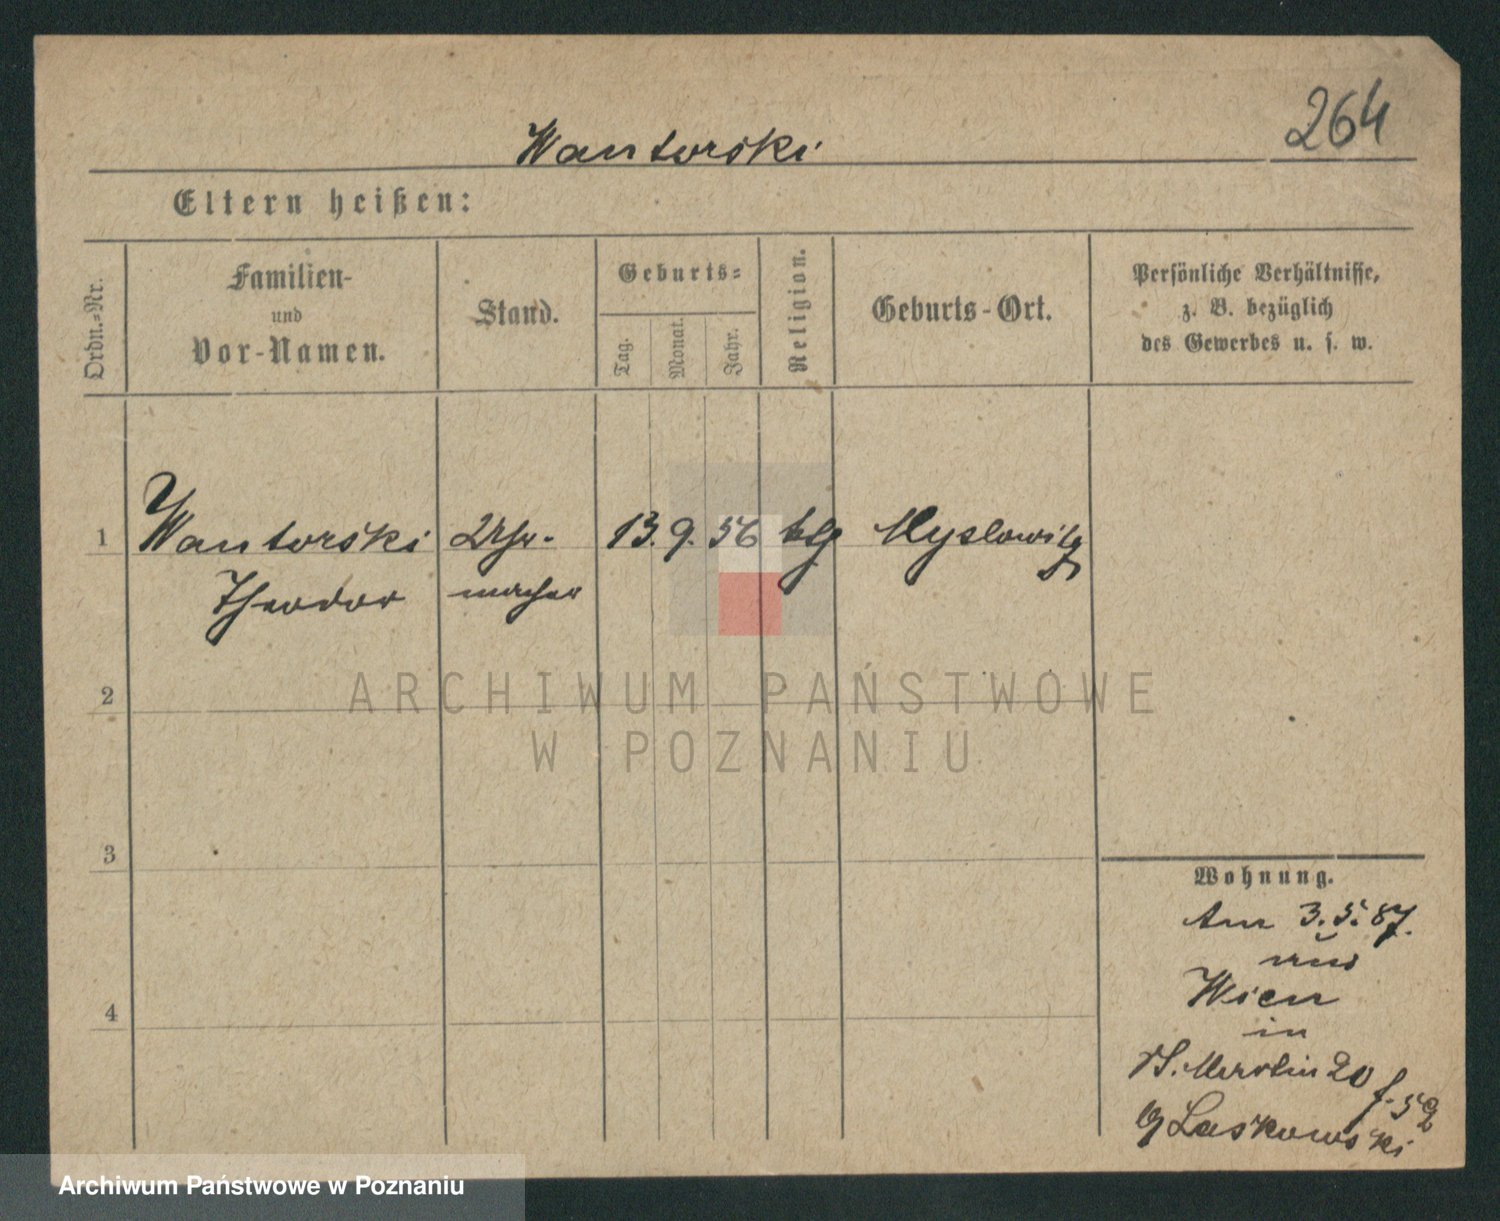 264
Wantorski
Eltern heißen:
Ordn.-Nr.
Familien-
und
Vor-Namen.
Stand.
Geburts-
Tag.
Monat.
Jahr.
Religion.
Geburts-Ort.
Persönliche Verhältnisse,
z. B. bezüglich
des Gewerbes u. s. w.
1 Wantorski Uhr- 13. 9. 56 ktg Myslowitz
Theodor macher
2
ARCHIWUM PAŃSTWOWE
W POZNANIU
3
Wohnung.
Am 3. 5. 87.
aus
Wien
4
in
St. Martin 20
f. 52
Laskowski
Archiwum Państwowe w Poznaniu